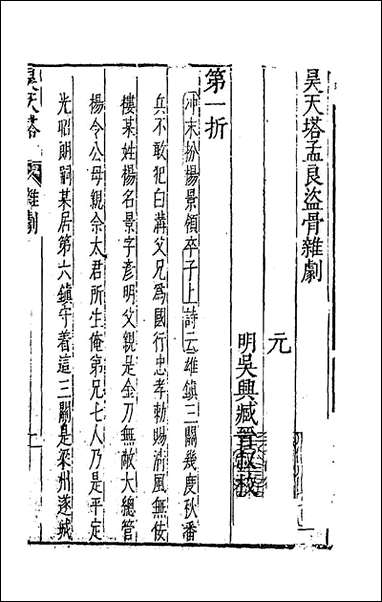 昊天塔孟良盜骨雜劇
元
明吳興臧晉叔校
第一折
冲末扮楊景領卒子上詩云雄鎮三關幾度秋番
兵不敢犯白溝父兄爲國行忠孝勅賜清風無佞
樓某姓楊名景字彥明父親是金刀無敵大總管
楊令公母親佘太君所生俺弟兄七人乃是平定
光昭朗嗣某居第六鎮守着這三關是梁州遂城
昊天塔
雜劇
一